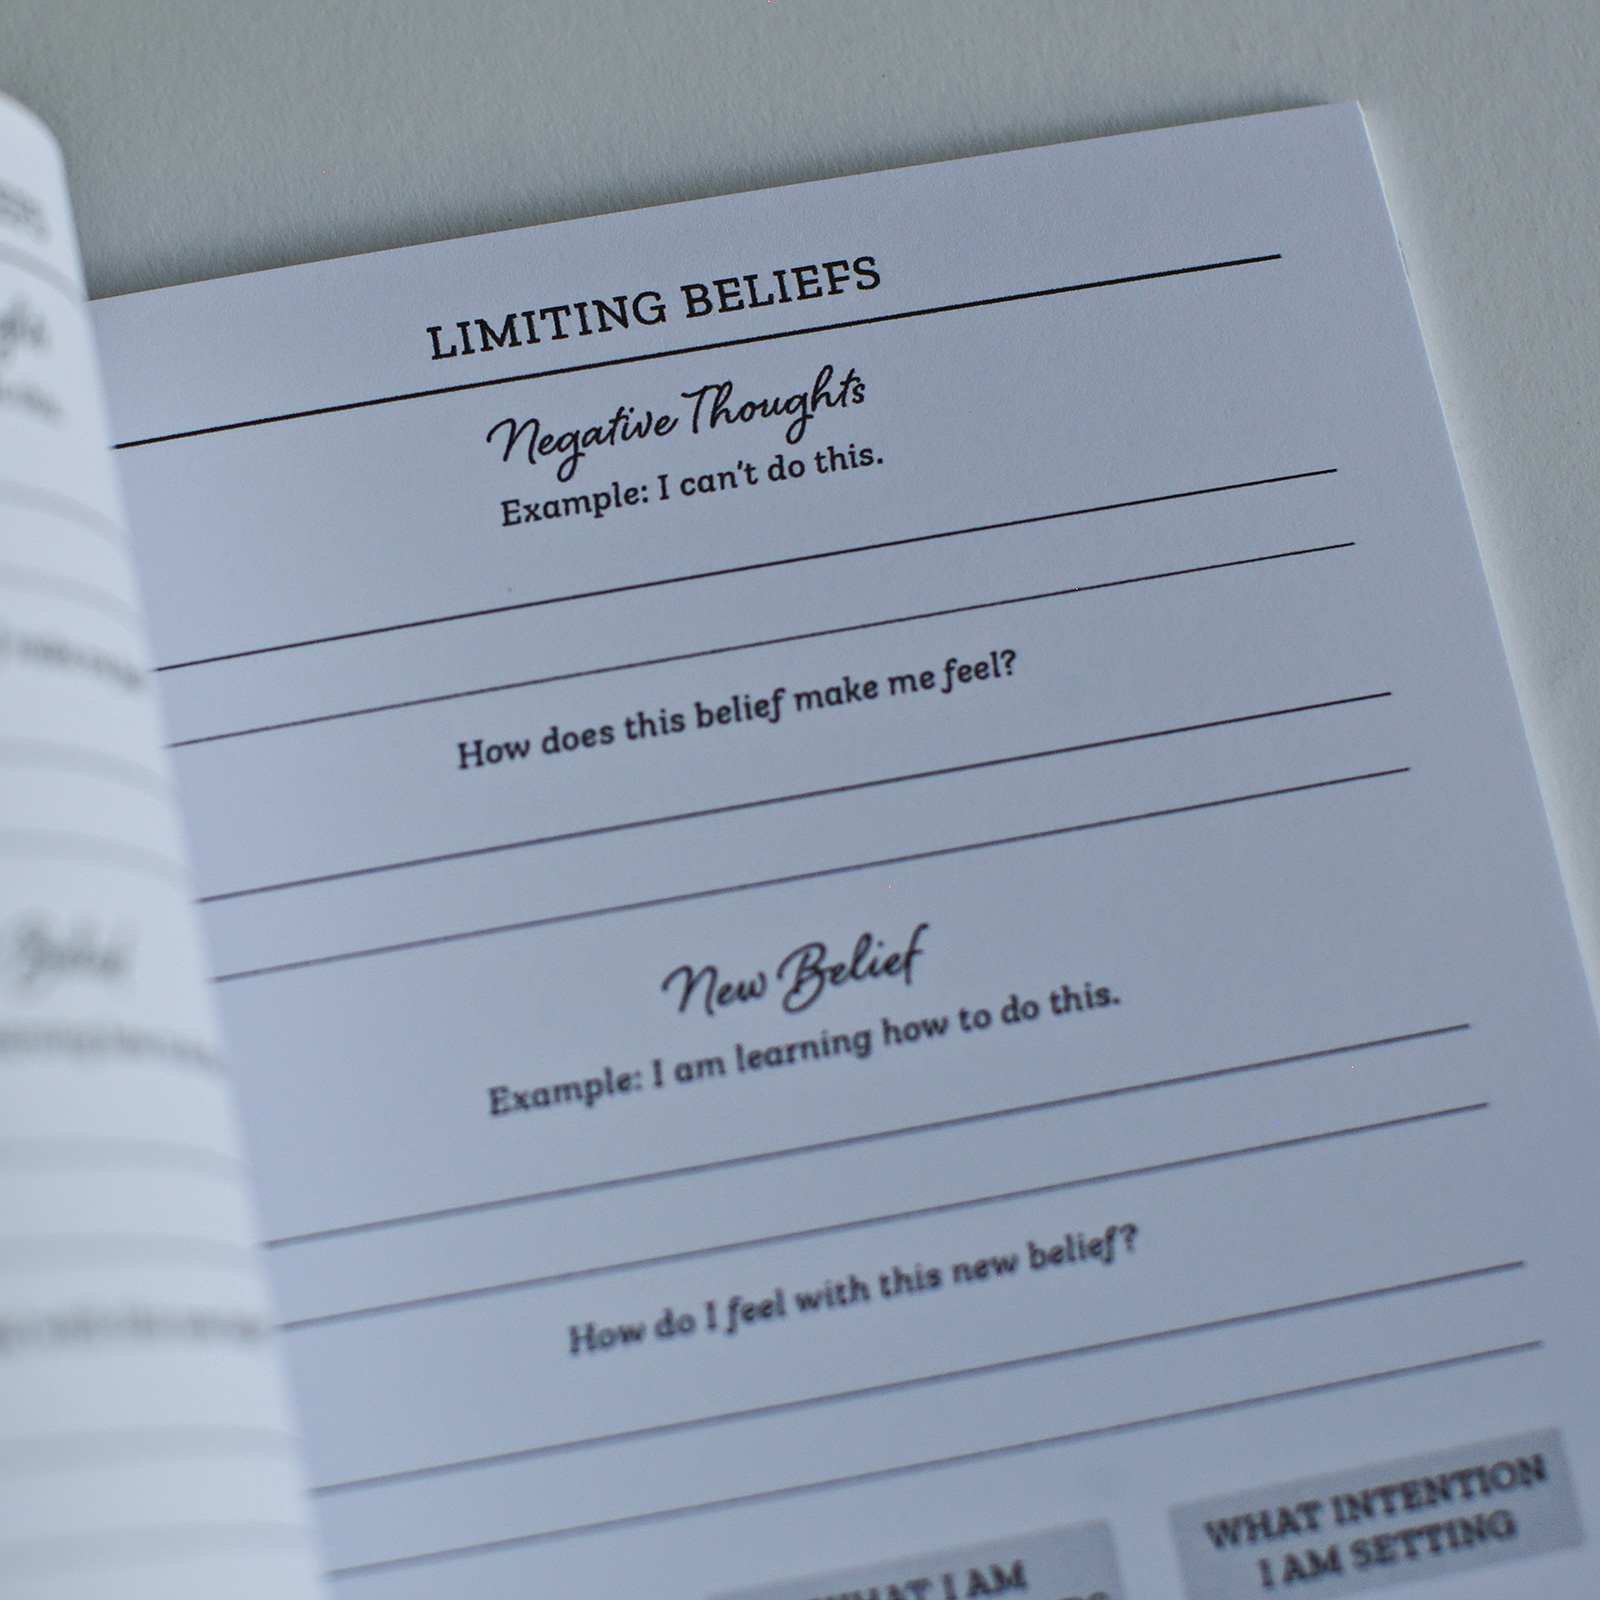 LIMITING BELIEFS
Negative Thoughts
Example: I can't do this.
How does this belief make me feel?
New Belief
Example: I am learning how to do this.
How do I feel with this new belief?
WHAT INTENTION
I AM SETTING
WHAT I AM